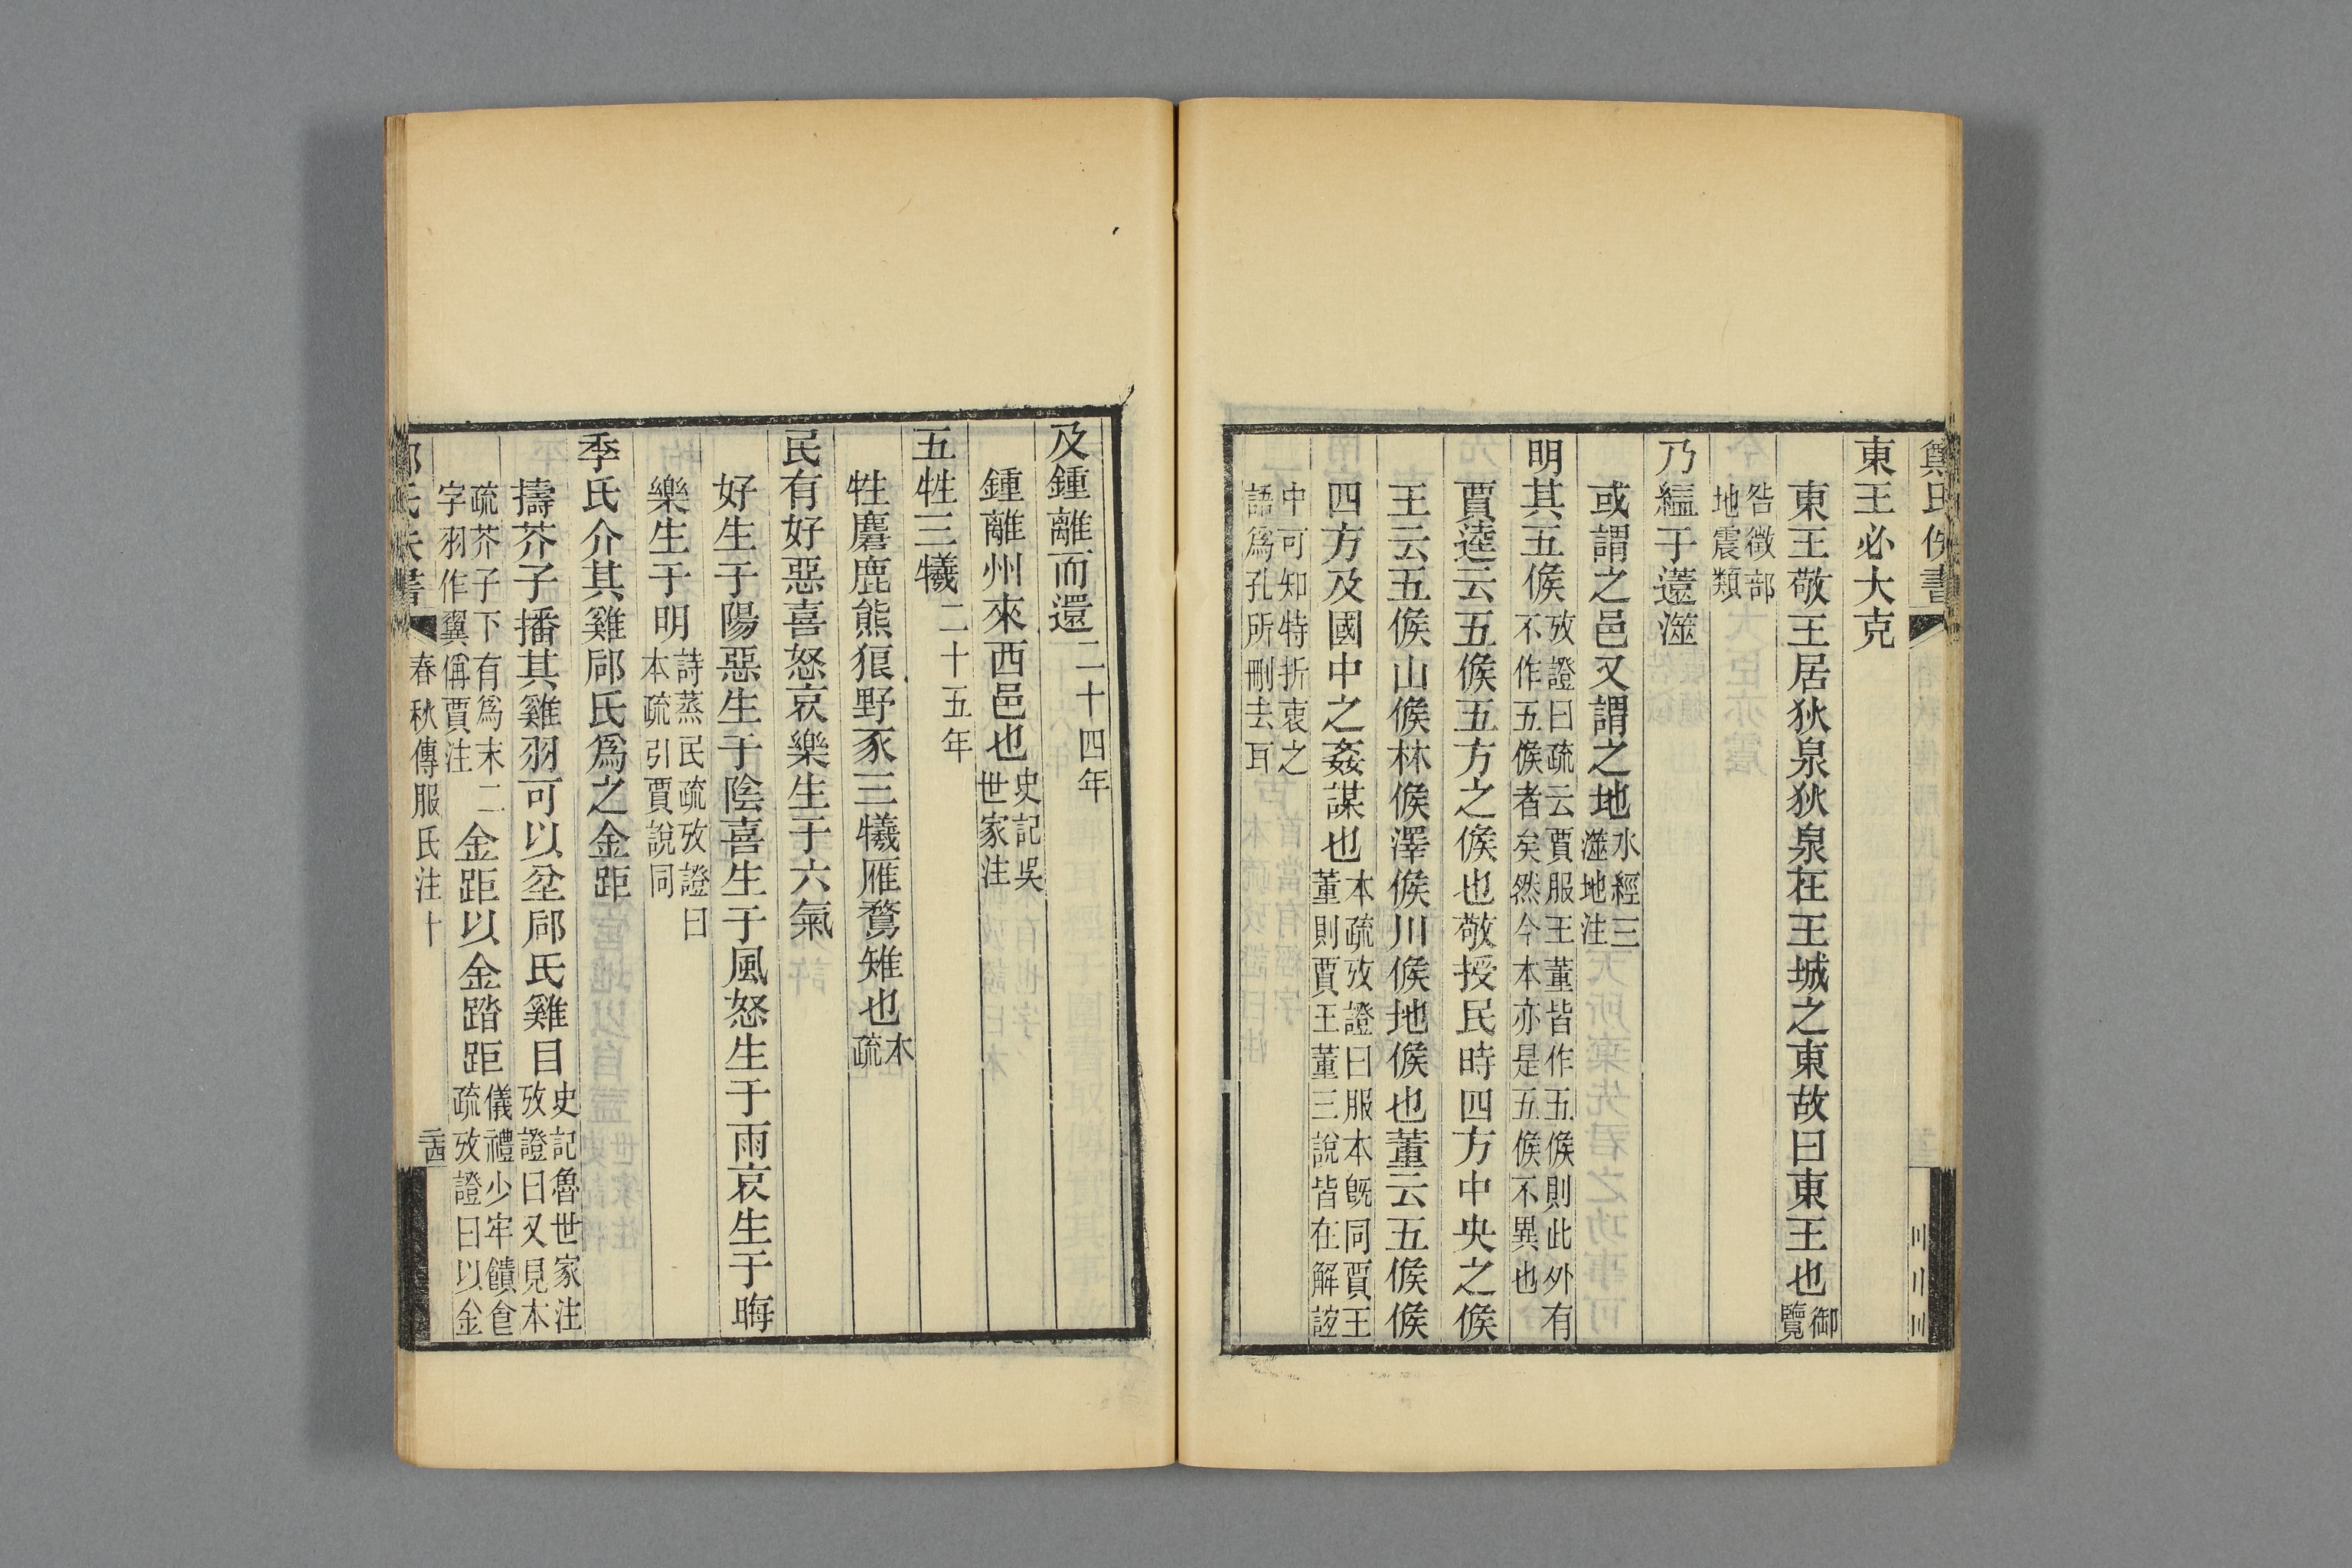 鄭氏佚書
東王必大克
東王敬王居狄泉狄泉在王城之東故曰東王也御覽
咎徵部地震類
乃縕于薳澨
或謂之邑又謂之地水經三澨地注
明其五候攷證曰疏云賈服王董皆作五候則此外有不作五候者矣然今本亦是五候不異也
賈逵云五候五方之候也敬授民時四方中央之候
王云五候山候林候澤候川候地候也董云五候候
四方及國中之姦謀也本疏攷證曰服本旣同賈王董則賈王董三說皆在解誼
中可知特折衷之語爲孔所刪去耳
及鍾離而還二十四年
鍾離州來西邑也史記吳世家注
五牲三犧二十五年
牲麏鹿熊狼野豕三犧雁鶩雉也本疏
民有好惡喜怒哀樂生于六氣
好生于陽惡生于陰喜生于風怒生于雨哀生于晦
樂生于明詩蒸民疏攷證曰本疏引賈說同
季氏介其雞郈氏爲之金距
擣芥子播其雞羽可以坌郈氏雞目史記魯世家注攷證曰又見本
疏芥子下有爲末二字羽作翼偁賈注金距以金踏距儀禮少牢饋食疏攷證曰以金
氏佚書 春秋傳服氏注十